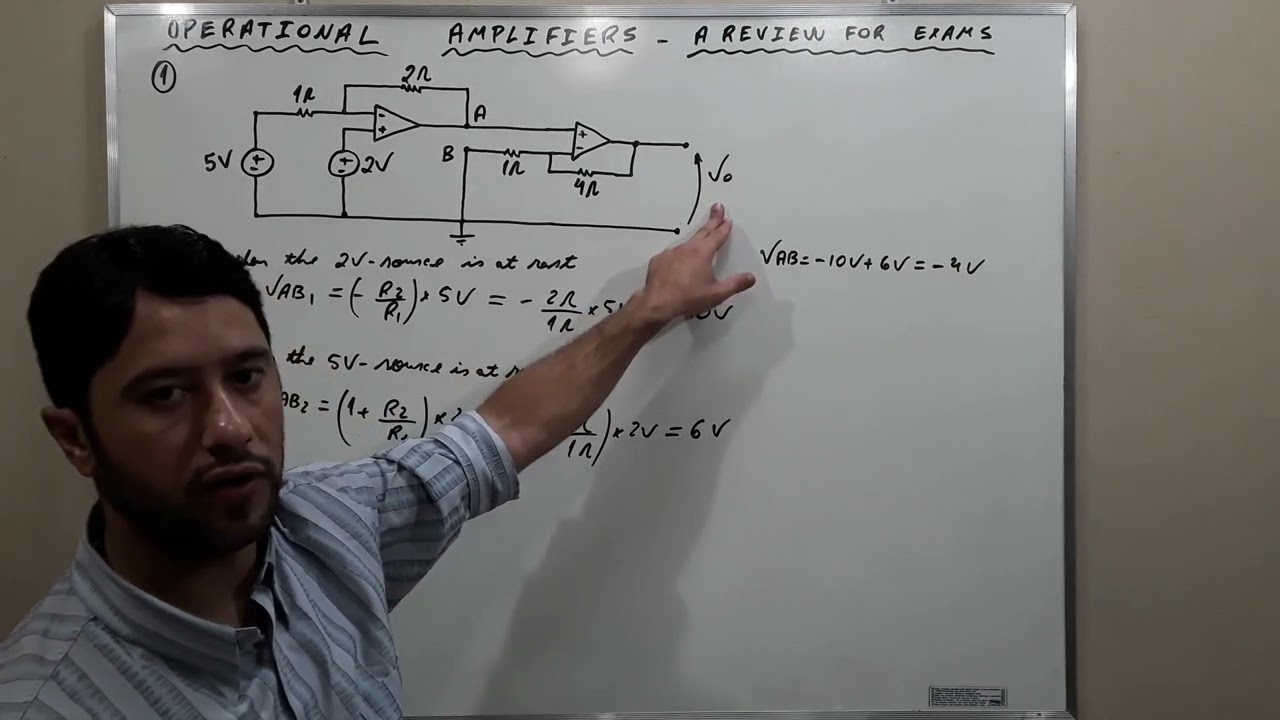 OPERATIONAL AMPLIFIERS - A REVIEW FOR EXAMS
1
2Ω
1Ω
A
5V
2V
B
1Ω
4Ω
Vo
the 2V-source is at rest
VAB = -10V + 6V = -4V
VAB1 = (- R2/R1) * 5V = - 2Ω/1Ω * 5
the 5V-source is at
AB2 = (1 + R2/R1) * 2
1Ω) * 2V = 6V